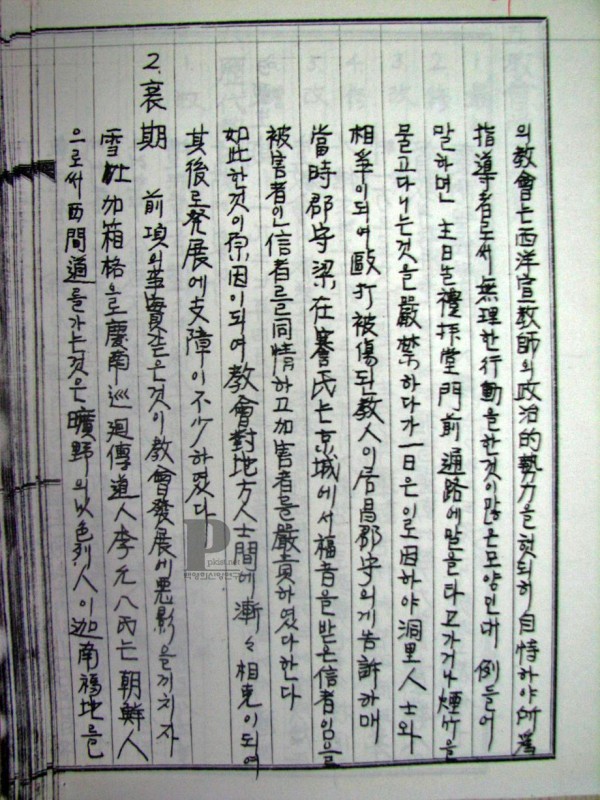 의 敎會는 西洋宣敎師의 政治的 勢力을 헛되히 自恃하야 所爲
指導者로서 無理한 行動을 한것 많은 모양인대 例들어
말하면 主日날 禮拜堂 門前 通路에 말을 타고 가거나 煙竹을
물고 다니는 것을 嚴禁하다가 一日은 이로 因하야 洞里人士와
相爭이 되여 毆打 被傷된 敎人이 居昌郡守의게 告訴하매
當時 郡守 梁在謇氏는 京城에서 福音을 받은 信者임으로
被害者인 信者를 同情하고 加害者를 嚴責하였다 한다
如此한 것이 原因이 되여 敎會對 地方人士間에 漸々 相克이 되여
其後로 発展에 支障이 不少하였다
2. 衰期 前項의 事實 같은 것이 敎會發展에 悪影을 끼치자
雪上加箱格으로 慶南 巡廻傳道人 李元八氏는 朝鮮人
으로써 西間道를 가는 것은 曠野의 以色列人이 迦南福地를
pkist.net